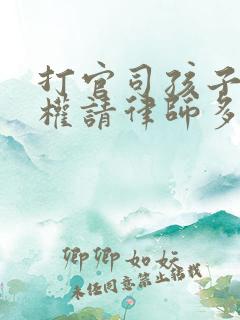 打官司孩子
權請律師多
卿卿如妘
未经同意禁止转载